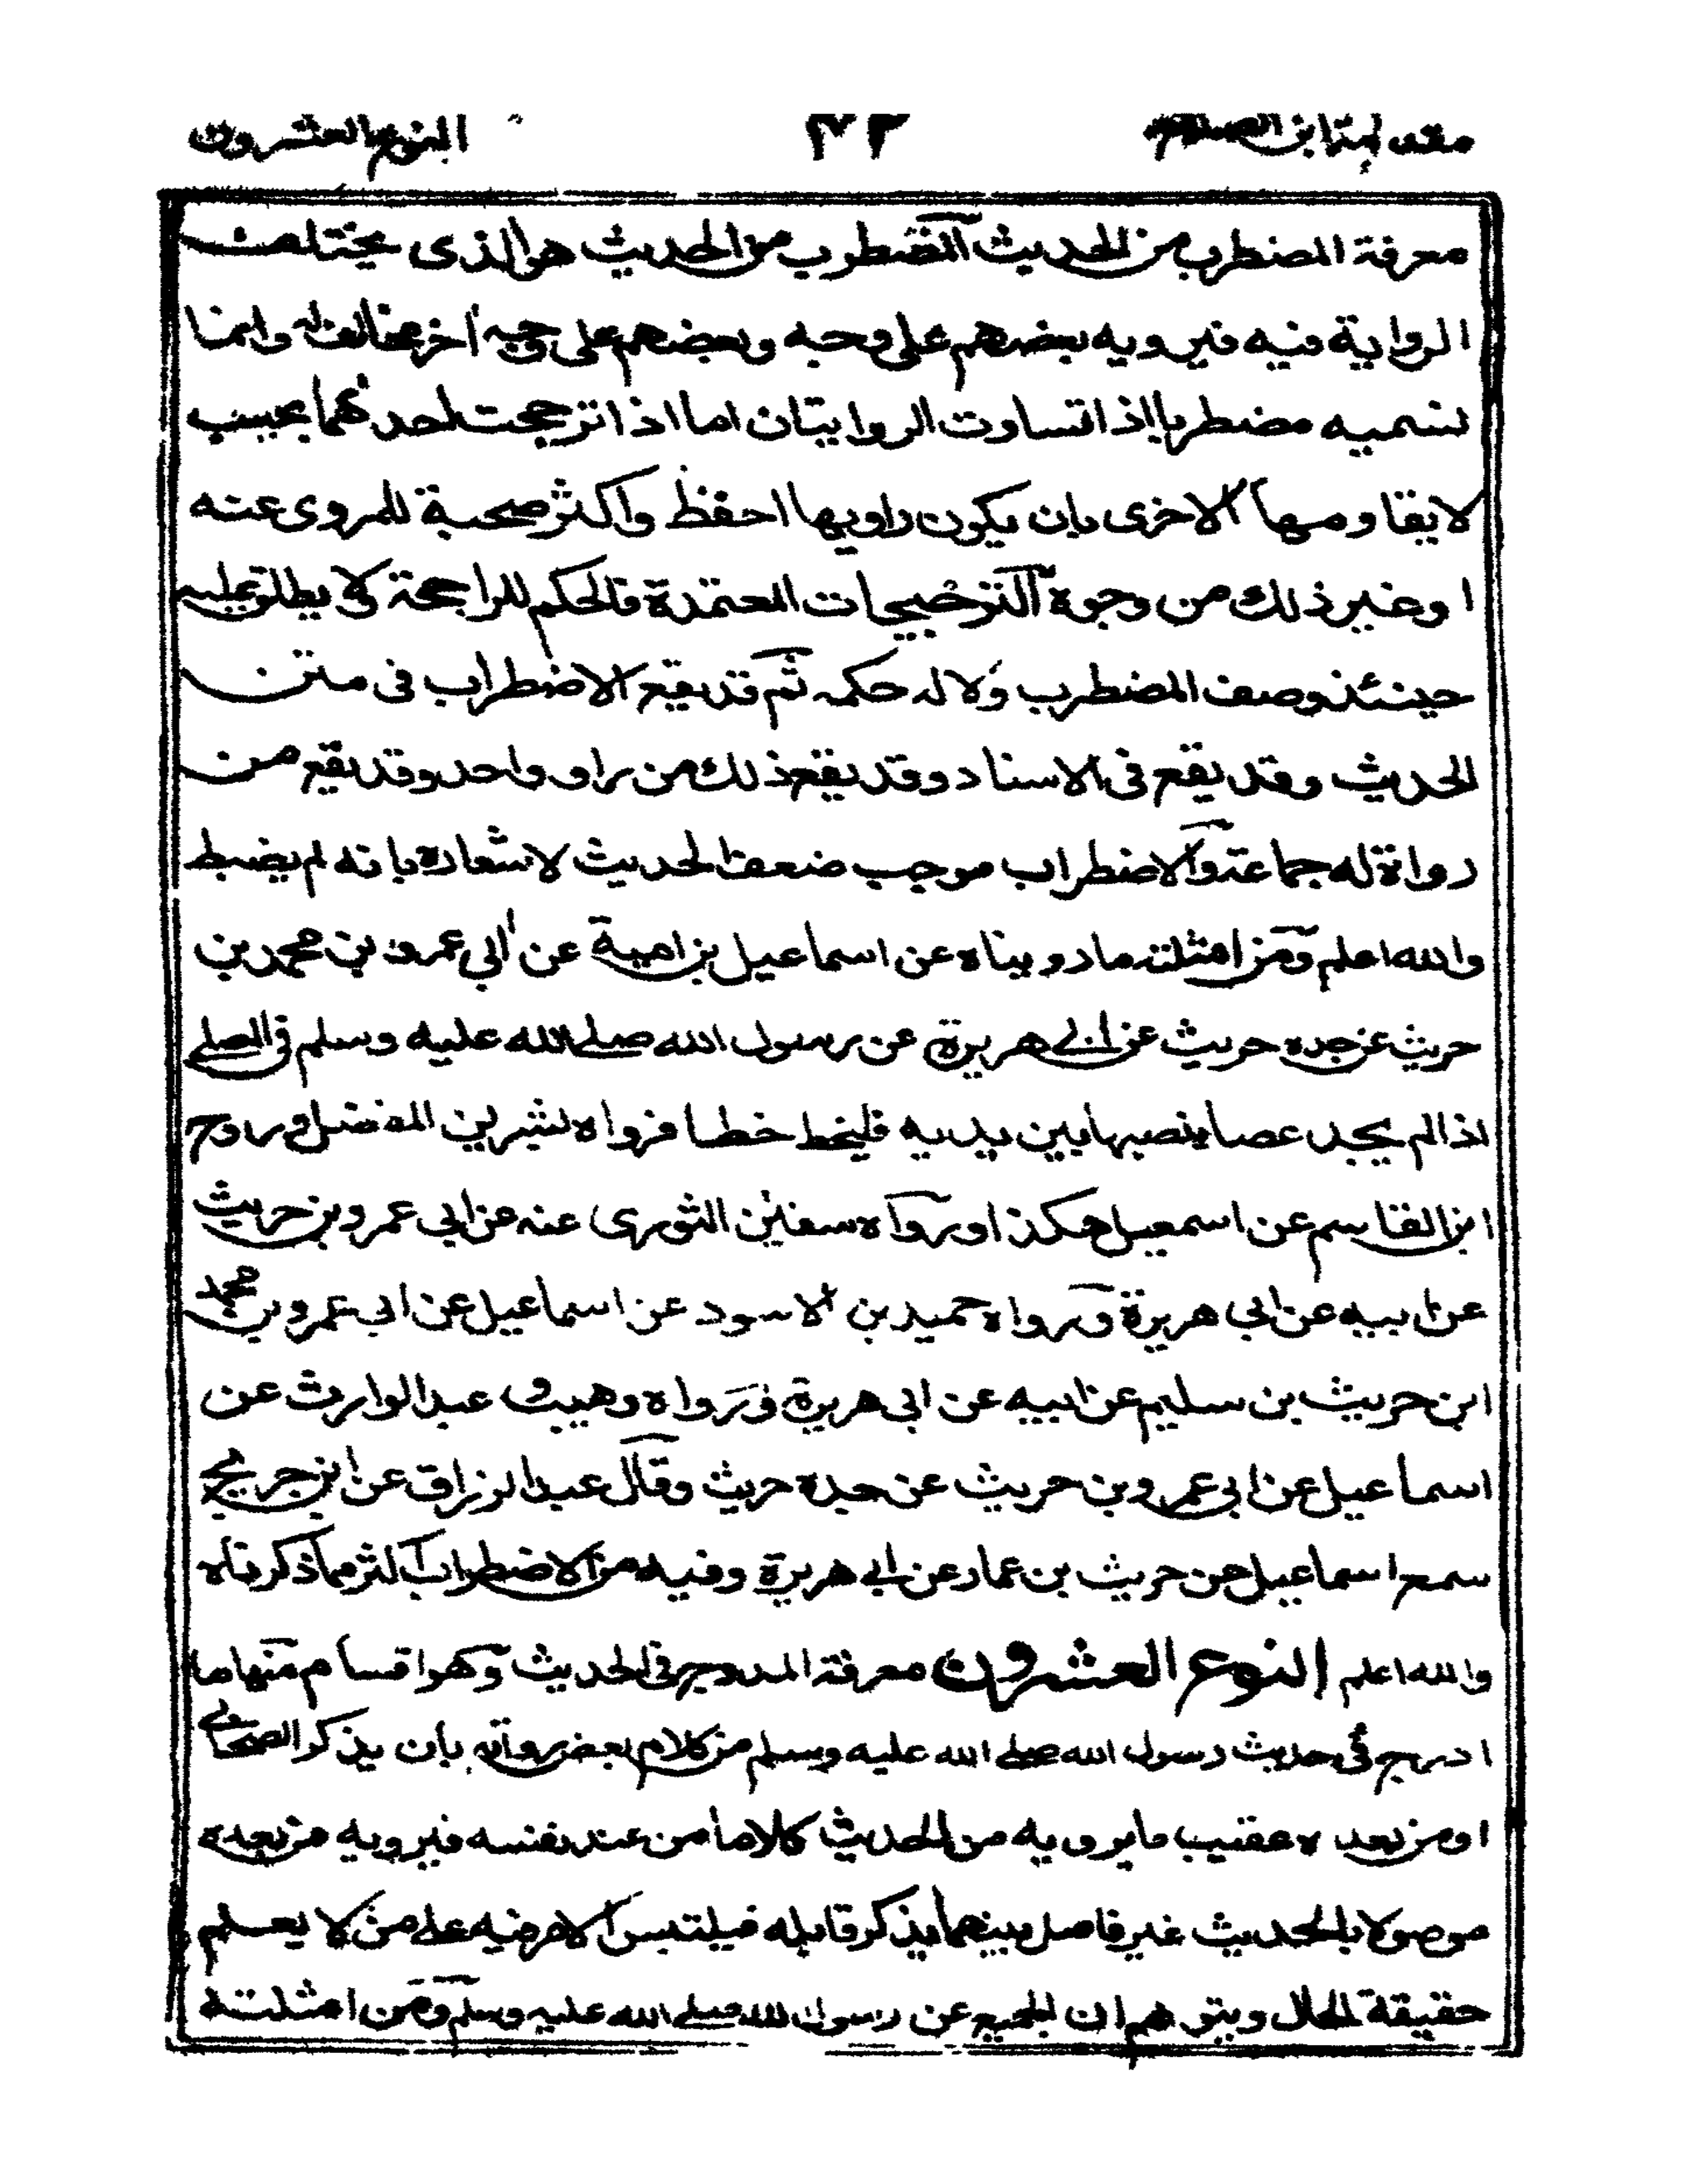 مقدمة ابن الصلاح ٤٣ النوع العشرون
معرفة المضطرب من الحديث المضطرب من الحديث هو الذى يختلف
الرواية فيه فيرويه بعضهم على وجه وبعضهم على وجه اخر مخالف له وانما
نسميه مضطربا اذا تساوت الروايتان اما اذا ترجحت احدٰهما بحيث
لا يقاومها الاخرى بان يكون راويها احفظ واكثر صحبة للمروى عنه
او غير ذلك من وجوه الترجيحات المعتمدة فالحكم للراجحة ولا يطلق عليه
حينئذ وصف المضطرب ولا له حكمه ثم قد يقع الاضطراب فى متن
الحديث وقد يقع فى الاسناد وقد يقع ذلك من راو واحد وقد يقع من
رواة له جماعة والاضطراب موجب ضعف الحديث لاشعاره بانه لم يضبط
والله اعلم ومن امثلته ما رويناه عن اسماعيل بن امية عن ابي عمرو بن محمد بن
حريث عن جده حريث عن ابي هريرة عن رسول الله صلى الله عليه وسلم في المصلي
اذا لم يجد عصا ينصبها بين يديه فليخط خطا فرواه بشر بن المفضل وروح
ابن القاسم عن اسمعيل هكذا ورواه سفين الثورى عنه عن ابي عمرو بن حريث
عن ابيه عن ابي هريرة ورواه حميد بن الاسود عن اسماعيل عن ابي عمرو بن محمد
ابن حريث بن سليم عن ابيه عن ابي هريرة ورواه وهيب و عبد الوارث عن
اسماعيل عن ابي عمرو بن حريث عن جده حريث وقال عبد الرزاق عن ابن جريج
سمع اسماعيل عن حريث بن عمار عن ابي هريرة وفيه من الاضطراب اكثر مما ذكرناه
والله اعلم النوع العشرون معرفة المدرج في الحديث وهو اقسام منها ما
ادرج في حديث رسول الله صلى الله عليه وسلم من كلام بعض رواته بان يذكر الصحابي
او من بعده عقيب ما يرويه من الحديث كلاما من عند نفسه فيرويه من بعده
موصولا بالحديث غير فاصل بينهما بذكر قايله فيلتبس الامر فيه على من لا يعلم
حقيقة الحال ويتوهم ان الجميع عن رسول الله صلى الله عليه وسلم ومن امثلته